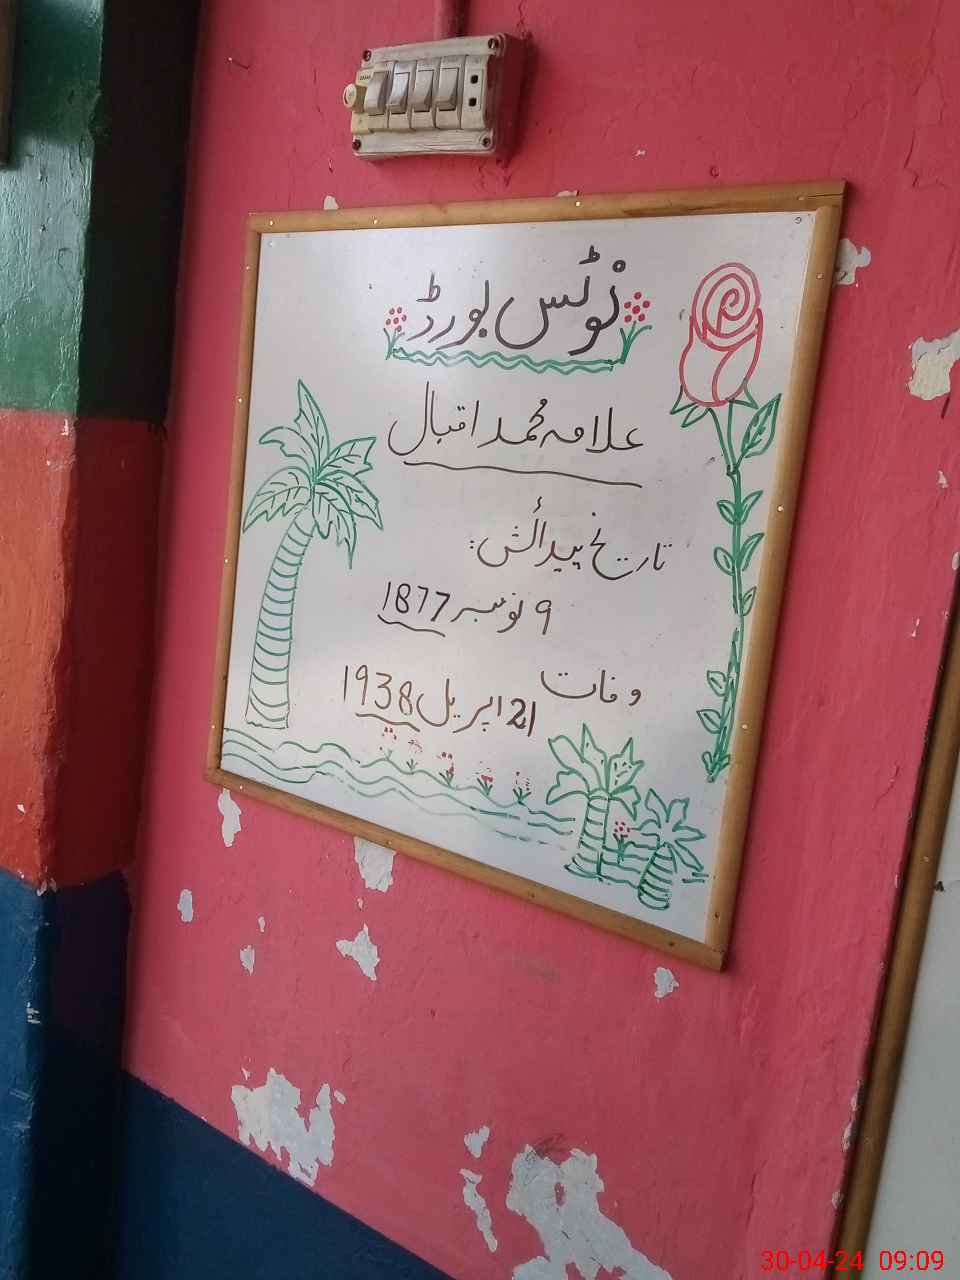 نوٹس بورڈ
علامہ محمد اقبال
تاریخ پیدائش:
9 نومبر 1877
وفات
21 اپریل 1938
30-04-24 09:09